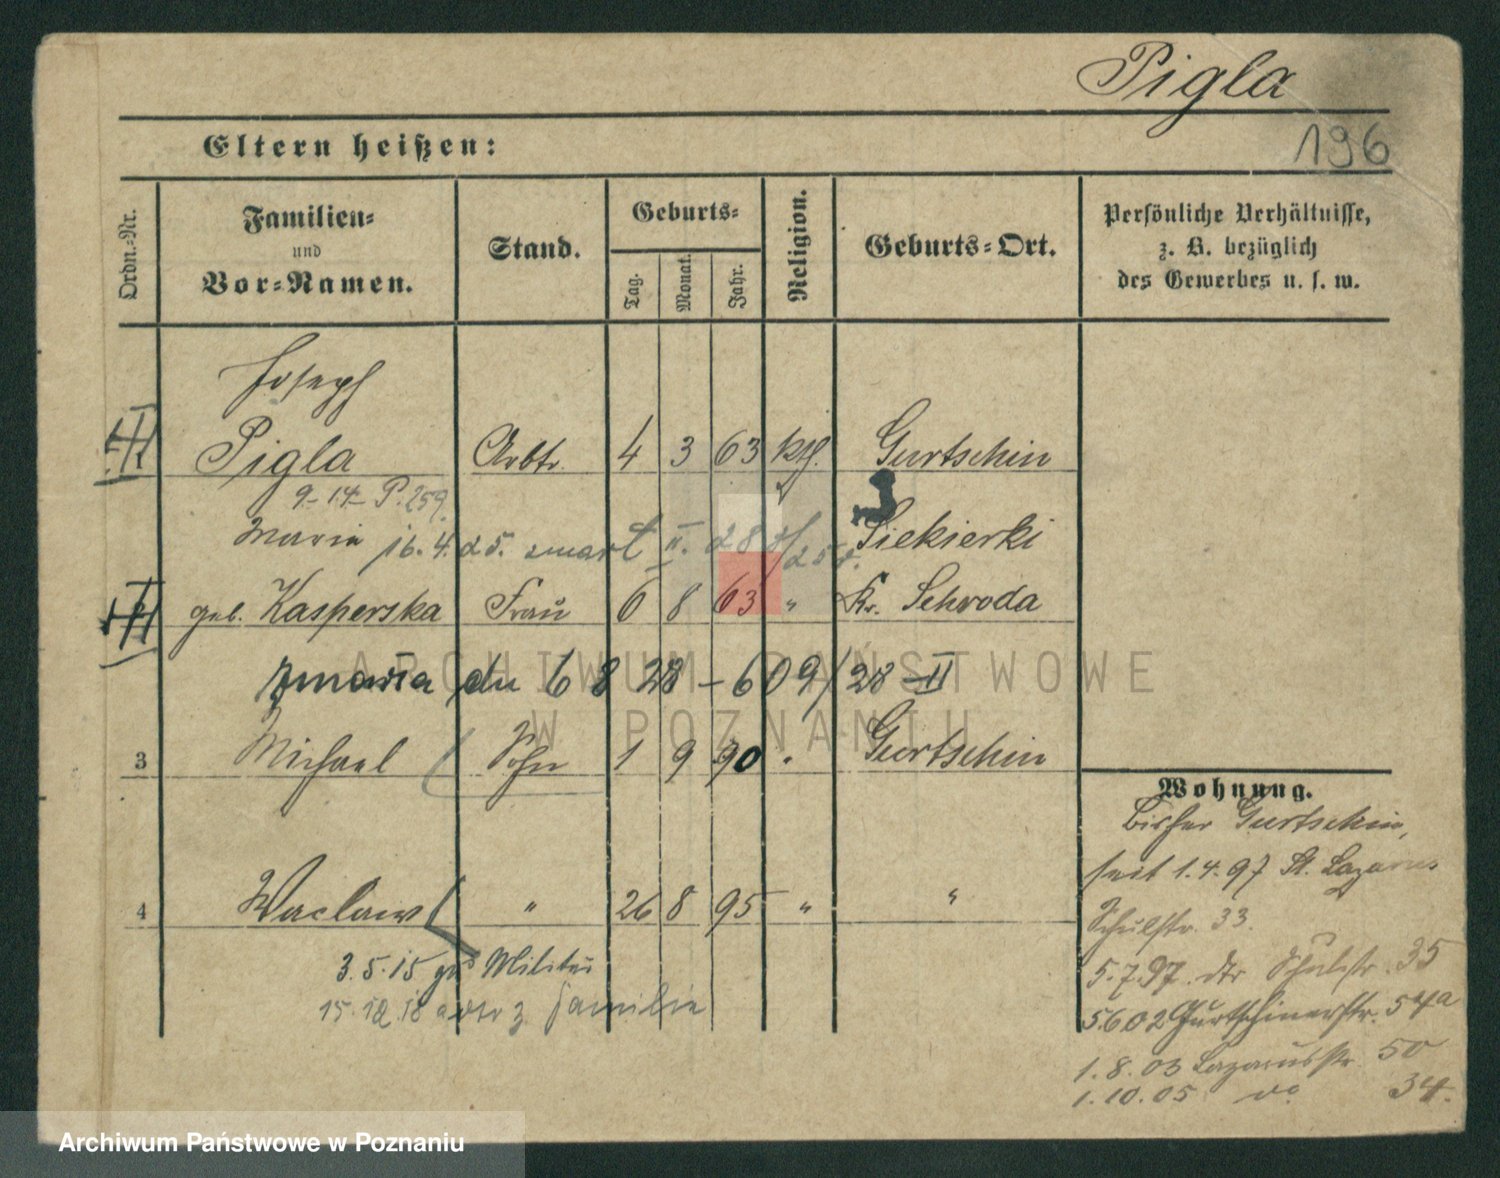 Pigla
196
Eltern heißen:
Ordn.-Nr.
Familien-
und
Vor-Namen.
Stand.
Geburts-
Tag.
Monat.
Jahr.
Religion.
Geburts-Ort.
Persönliche Verhältnisse,
z. B. bezüglich
des Gewerbes u. s. w.
Joseph
Pigla Arbtr. 4 3 63 kth. Gurtschin
9-14- P. 259.
Maria 16. 4. 25. zmarł II. 28 Siekierki
geb. Kasperska Frau 6 8 63 " Kr. Schroda
zmarła dn 6 8 28 - 609/28 II
3 Michael Sohn 1 9 90 " Gurtschin
4 Waclaw " 26 8 95 " "
3.5.15 zum Militär
15.12.18 familie
Wohnung.
bisher Gurtschin,
seit 1.4.97 St. Lazarus
Schulstr. 33.
5.7.97. dtr Schulstr. 35
5.6 02 Gurtschinerstr. 54a
1.8.03 Lazarusstr. 50
1.10.05 do 34.
ARCHIWUM PAŃSTWOWE
W POZNANIU
Archiwum Państwowe w Poznaniu